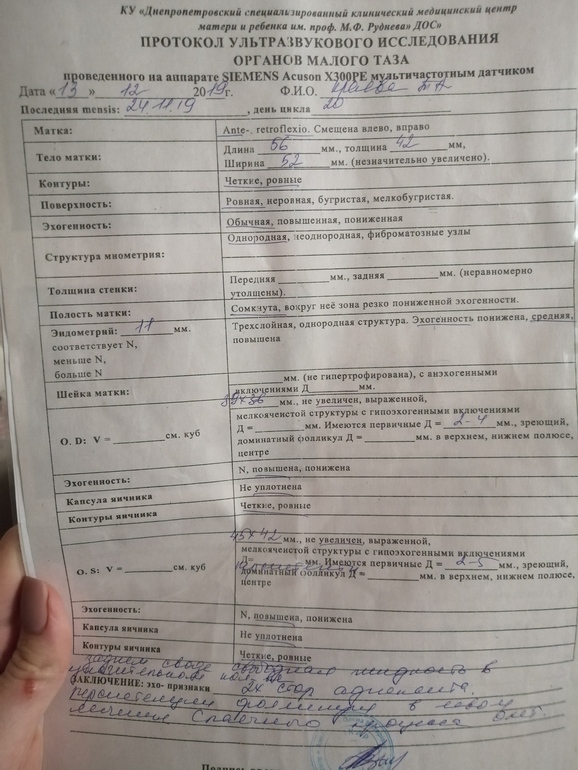 КУ «Днепропетровский специализированный клинический медицинский центр
матери и ребенка им. проф. М.Ф. Руднева» ДОС»
ПРОТОКОЛ УЛЬТРАЗВУКОВОГО ИССЛЕДОВАНИЯ
ОРГАНОВ МАЛОГО ТАЗА
проведенного на аппарате SIEMENS Acuson X300PE мультичастотным датчиком
Дата «13» 12 2019г. Ф.И.О.
Последняя mensis: 24.11.19, день цикла 20
Матка: Ante-, retroflexio. Смещена влево, вправо
Тело матки: Длина 56 мм., толщина 42 мм,
Ширина 52 мм. (незначительно увеличено).
Контуры: Четкие, ровные
Поверхность: Ровная, неровная, бугристая, мелкобугристая.
Эхогенность: Обычная, повышенная, пониженная
Структура миометрия: Однородная, неоднородная, фиброматозные узлы
Толщина стенки: Передняя ______ мм., задняя ______ мм. (неравномерно
утолщены).
Полость матки: Сомкнута, вокруг неё зона резко пониженной эхогенности.
Эндометрий: 11 мм. Трехслойная, однородная структура. Эхогенность понижена, средняя,
соответствует N, повышена
меньше N,
больше N
Шейка матки: ______ мм. (не гипертрофирована), с анэхогенными
включениями Д ______ мм.
O. D: V = ______ см. куб мм., не увеличен, выраженной,
мелкоячеистой структуры с гипоэхогенными включениями
Д = ______ мм. Имеются первичные Д = 2-4 мм., зреющий,
доминатный фолликул Д = ______ мм. в верхнем, нижнем полюсе,
центре
Эхогенность: N, повышена, понижена
Капсула яичника Не уплотнена
Контуры яичника Четкие, ровные
O. S: V = ______ см. куб 45x42 мм., не увеличен, выраженной,
мелкоячеистой структуры с гипоэхогенными включениями
Д= мм. Имеются первичные Д = 2-5 мм., зреющий,
доминатный фолликул Д = ______ мм. в верхнем, нижнем полюсе,
центре
Эхогенность: N, повышена, понижена
Капсула яичника Не уплотнена
Контуры яичника Четкие, ровные
заднем своде свободная жидкость в
незначительном
ЗАКЛЮЧЕНИЕ: эхо- признаки 2х стор аднексита.
персистенции фолликула в левом
спаечного процесса